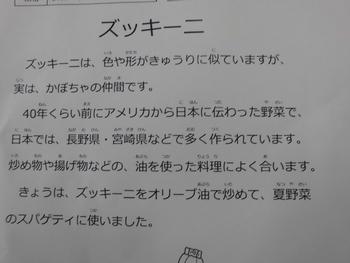 ズッキーニ
ズッキーニは、色や形がきゅうりに似ていますが、
実は、かぼちゃの仲間です。
40年くらい前にアメリカから日本に伝わった野菜で、
日本では、長野県・宮崎県などで多く作られています。
炒め物や揚げ物などの、油を使った料理によく合います。
きょうは、ズッキーニをオリーブ油で炒めて、夏野菜
のスパゲティに使いました。